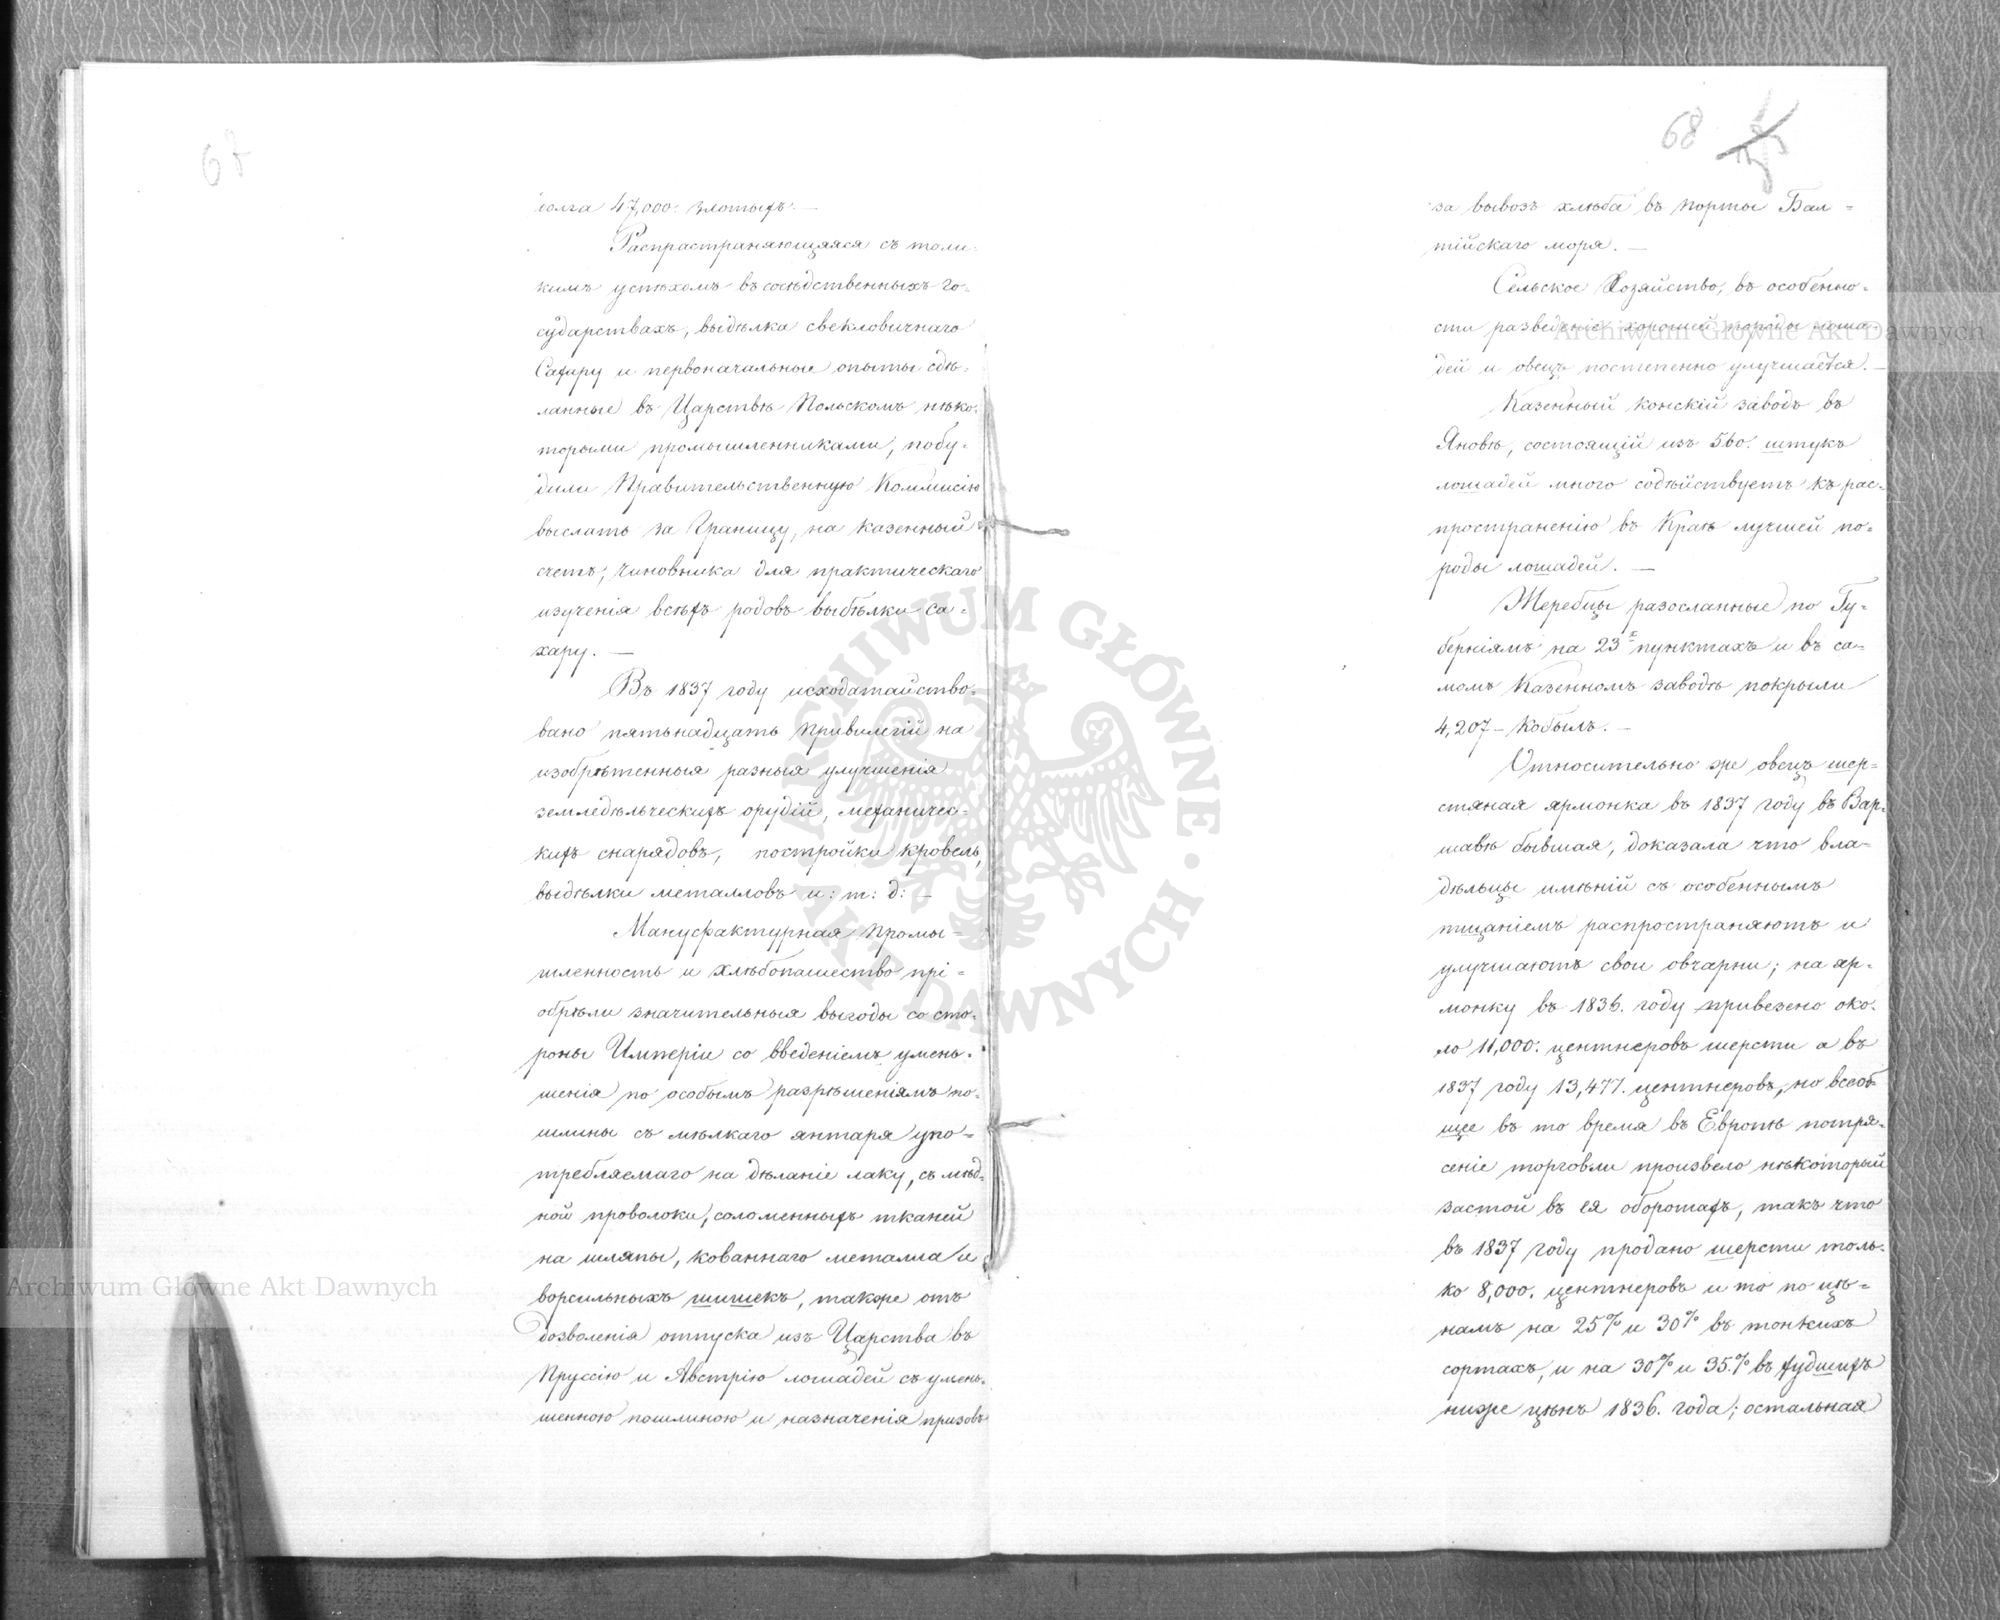 67
долга 47,000. злотыхъ. —
Распрастраняющаяся съ толи-
кимъ успѣхомъ въ сосѣдственныхъ го-
сударствахъ, выдѣлка свекловичнаго
Сахару и первоначальные опыты сдѣ-
ланные въ Царствѣ Польскомъ нѣко-
торыми промышленниками, побу-
дили Правительственную Коммисію
выслать за Границу, на казенный
счетъ, чиновника для практическаго
изученія всѣхъ родовъ выдѣлки са-
хару. —
Въ 1837 году исходатайство-
вано пятьнадцать привилегій на
изобрѣтенныя разныя улучшенія
земледѣльческихъ орудій, механичес-
кихъ снарядовъ, постройки кровель,
выдѣлки металловъ и: т: д: —
Мануфактурная промы-
шленность и хлѣбопашество прі-
обрѣли значительныя выгоды со сто-
роны Имперіи со введеніемъ умень-
шенія по особымъ разрѣшеніямъ по-
шлины съ мѣлкаго янтаря упо-
требляемаго на дѣланіе лаку, съ мѣд-
ной проволоки, соломенныхъ тканей
на шляпы, кованнаго металла и
ворсильныхъ шишекъ, также отъ
дозволенія отпуска изъ Царства въ
Пруссію и Австрію лошадей съ умень-
шенною пошлиною и назначенія призовъ
68
за вывозъ хлѣба въ порты Бал-
тійскаго моря. —
Сельское Хозяйство, въ особенно-
сти разведеніе хорошей породы лоша-
дей и овецъ постепенно улучшается. —
Казенный конскій заводъ въ
Яновѣ, состоящій изъ 560. штукъ
лошадей много содѣйствуетъ къ рас-
пространенію въ Краѣ лучшей по-
роды лошадей. —
Жеребцы разосланные по Гу-
берніямъ на 23х пунктахъ и въ са-
момъ Казенномъ заводѣ покрыли
4,207 – кобылъ. —
Относительно же овецъ шер-
стяная ярмонка въ 1837 году въ Вар-
шавѣ бывшая, доказала что вла-
дѣльцы имѣній съ особеннымъ
тщаніемъ распространяютъ и
улучшаютъ свои овчарни; на яр-
монку въ 1836. году привезено око-
ло 11,000. центнеровъ шерсти а въ
1837 году 13,477. центнеровъ, но всеоб-
щее въ то время въ Европѣ потря-
сеніе торговли произвело нѣкоторый
застой въ ея оборотахъ, такъ что
въ 1837 году продано шерсти толь-
ко 8,000. центнеровъ и то по цѣ-
намъ на 25% и 30% въ тонкихъ
сортахъ, и на 30% и 35.% въ худшихъ
ниже цѣнъ 1836. года; остальная
Archiwum Główne Akt Dawnych
Archiwum Główne Akt Dawnych
ARCHIWUM GŁÓWNE · AKT DAWNYCH ·